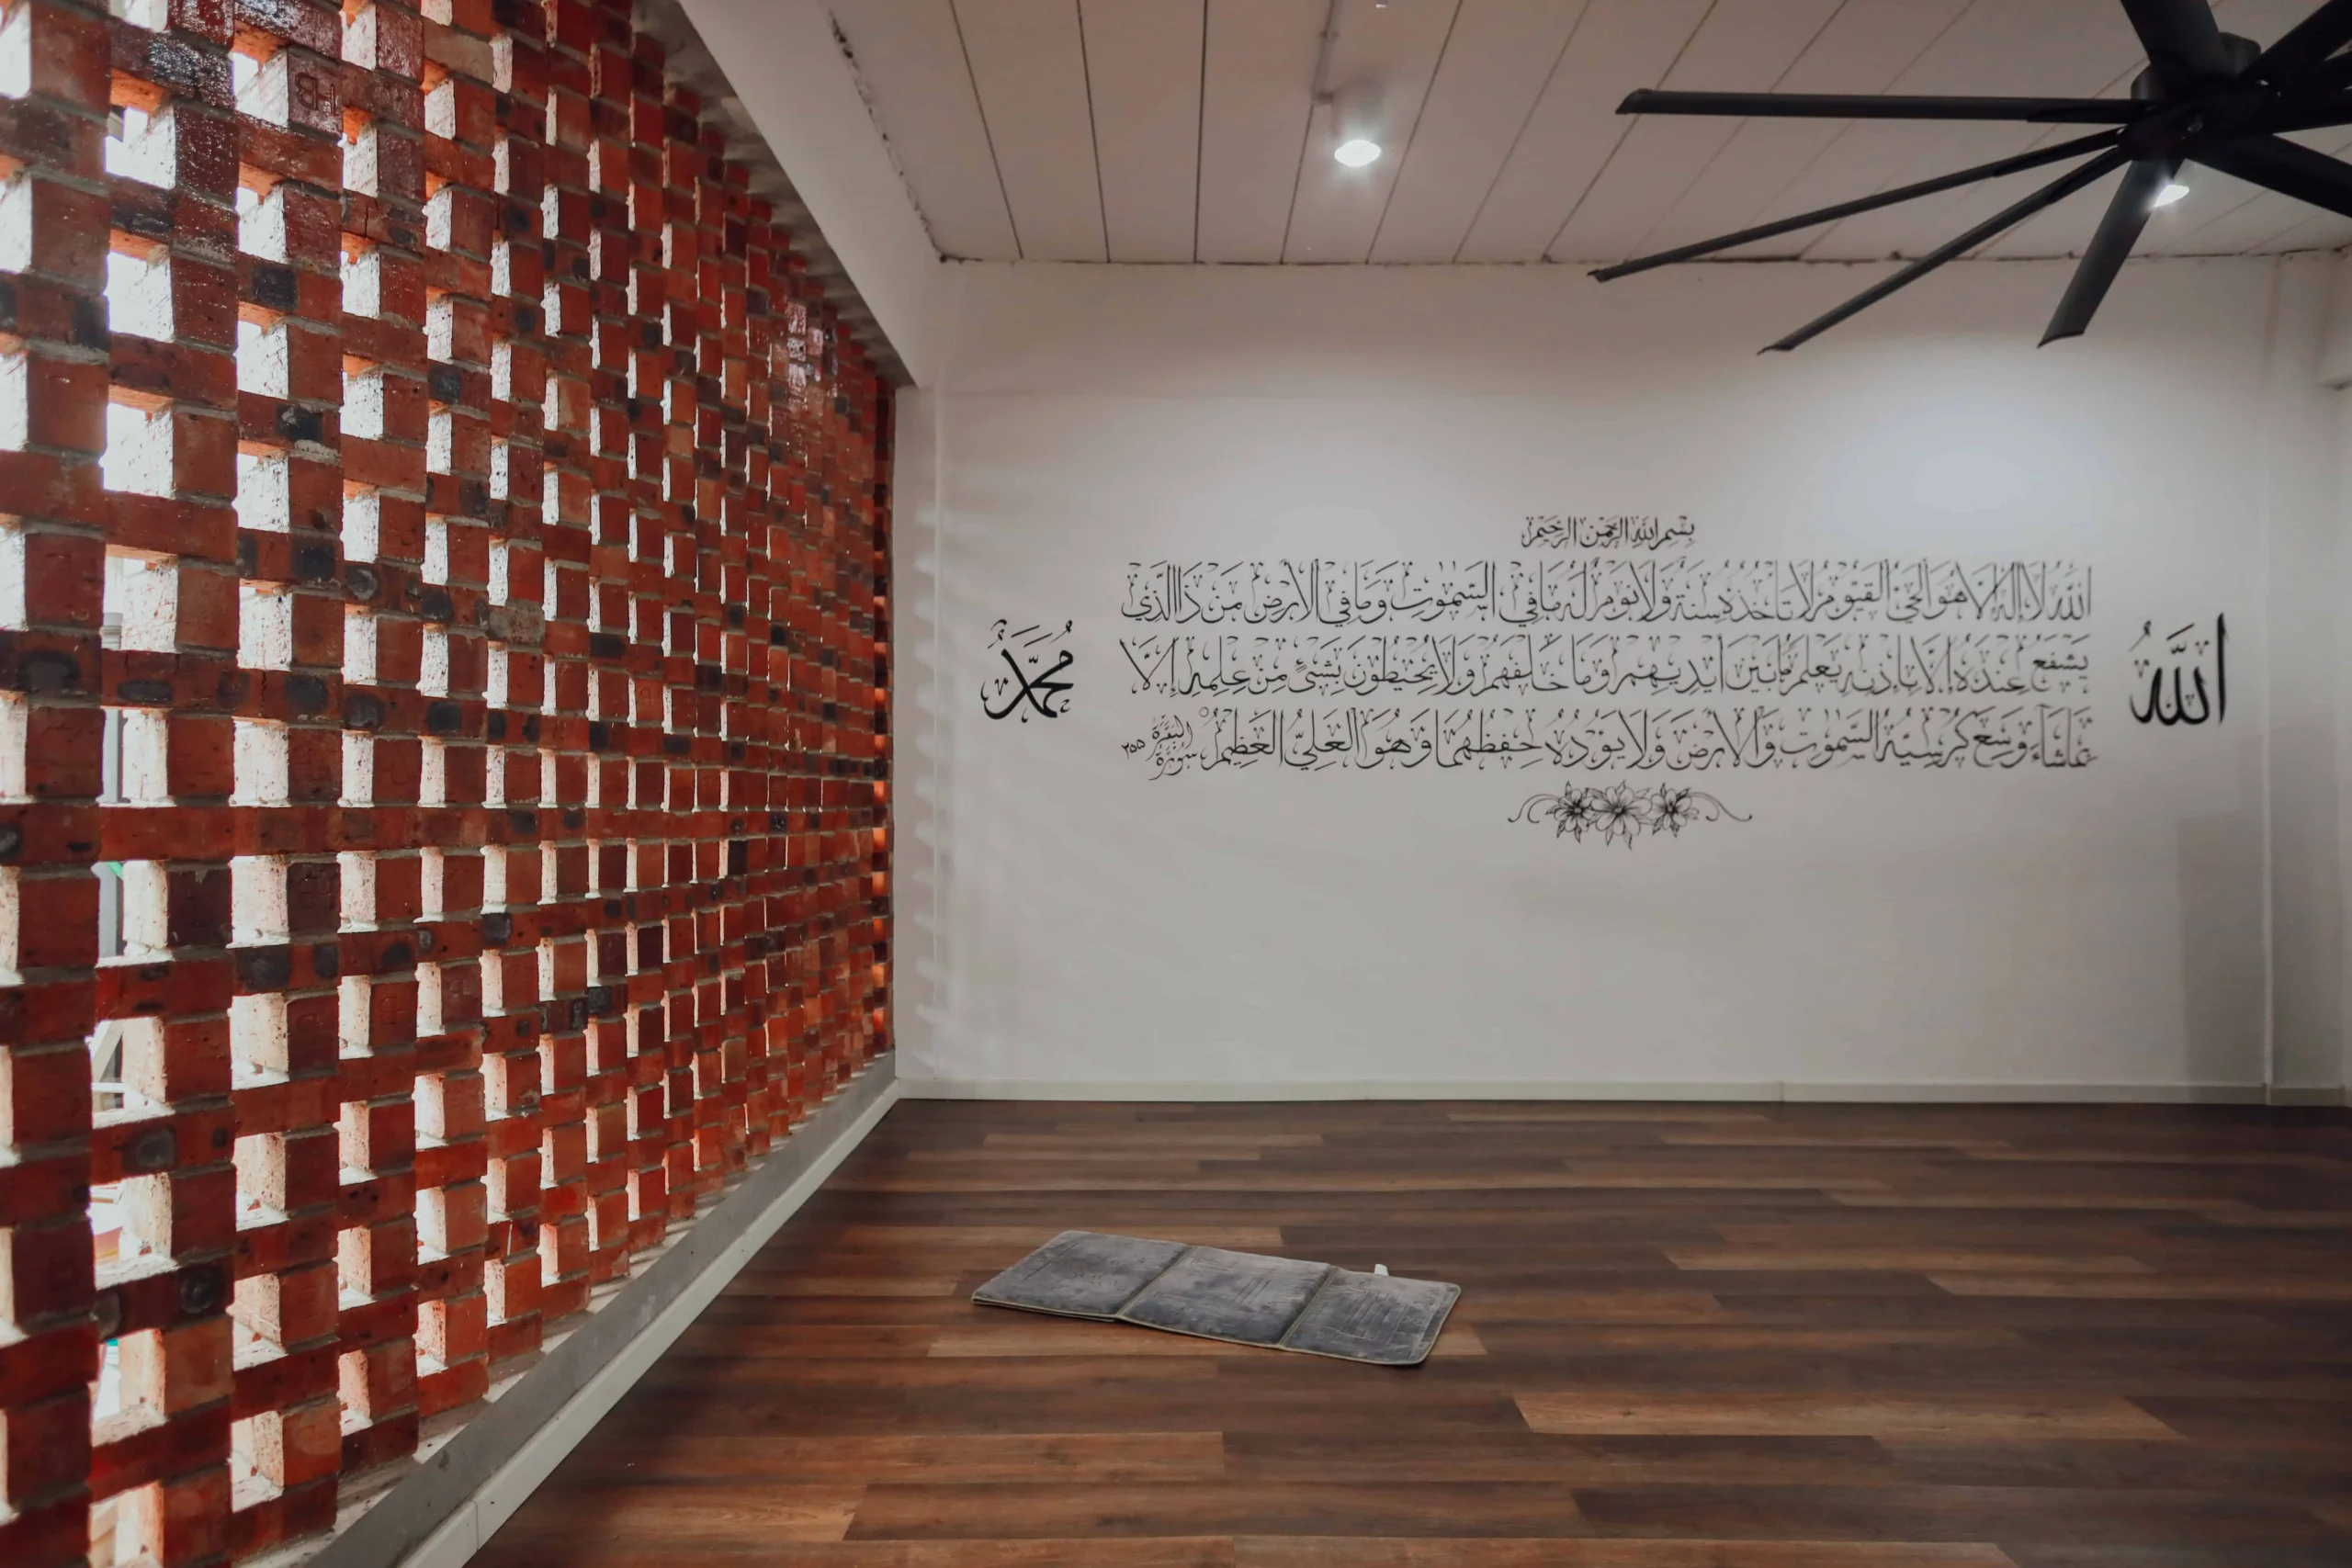 بِسْمِ اللهِ الرَّحْمٰنِ الرَّحِيْمِ
اَللّٰهُ لَا اِلٰهَ اِلَّا هُوَ الْحَيُّ الْقَيُّوْمُ لَا تَأْخُذُهٗ سِنَةٌ وَّلَا نَوْمٌ لَهٗ مَا فِي السَّمٰوٰتِ وَمَا فِي الْاَرْضِ مَنْ ذَا الَّذِيْ
يَشْفَعُ عِنْدَهٗ اِلَّا بِاِذْنِهٖ يَعْلَمُ مَا بَيْنَ اَيْدِيْهِمْ وَمَا خَلْفَهُمْ وَلَا يُحِيْطُوْنَ بِشَيْءٍ مِّنْ عِلْمِهٖ اِلَّا
بِمَا شَاءَ وَسِعَ كُرْسِيُّهُ السَّمٰوٰتِ وَالْاَرْضَ وَلَا يَـُٔوْدُهٗ حِفْظُهُمَا وَهُوَ الْعَلِيُّ الْعَظِيْمُ سورة البقرة ٢٥٥
اللّٰه
مُحَمَّد